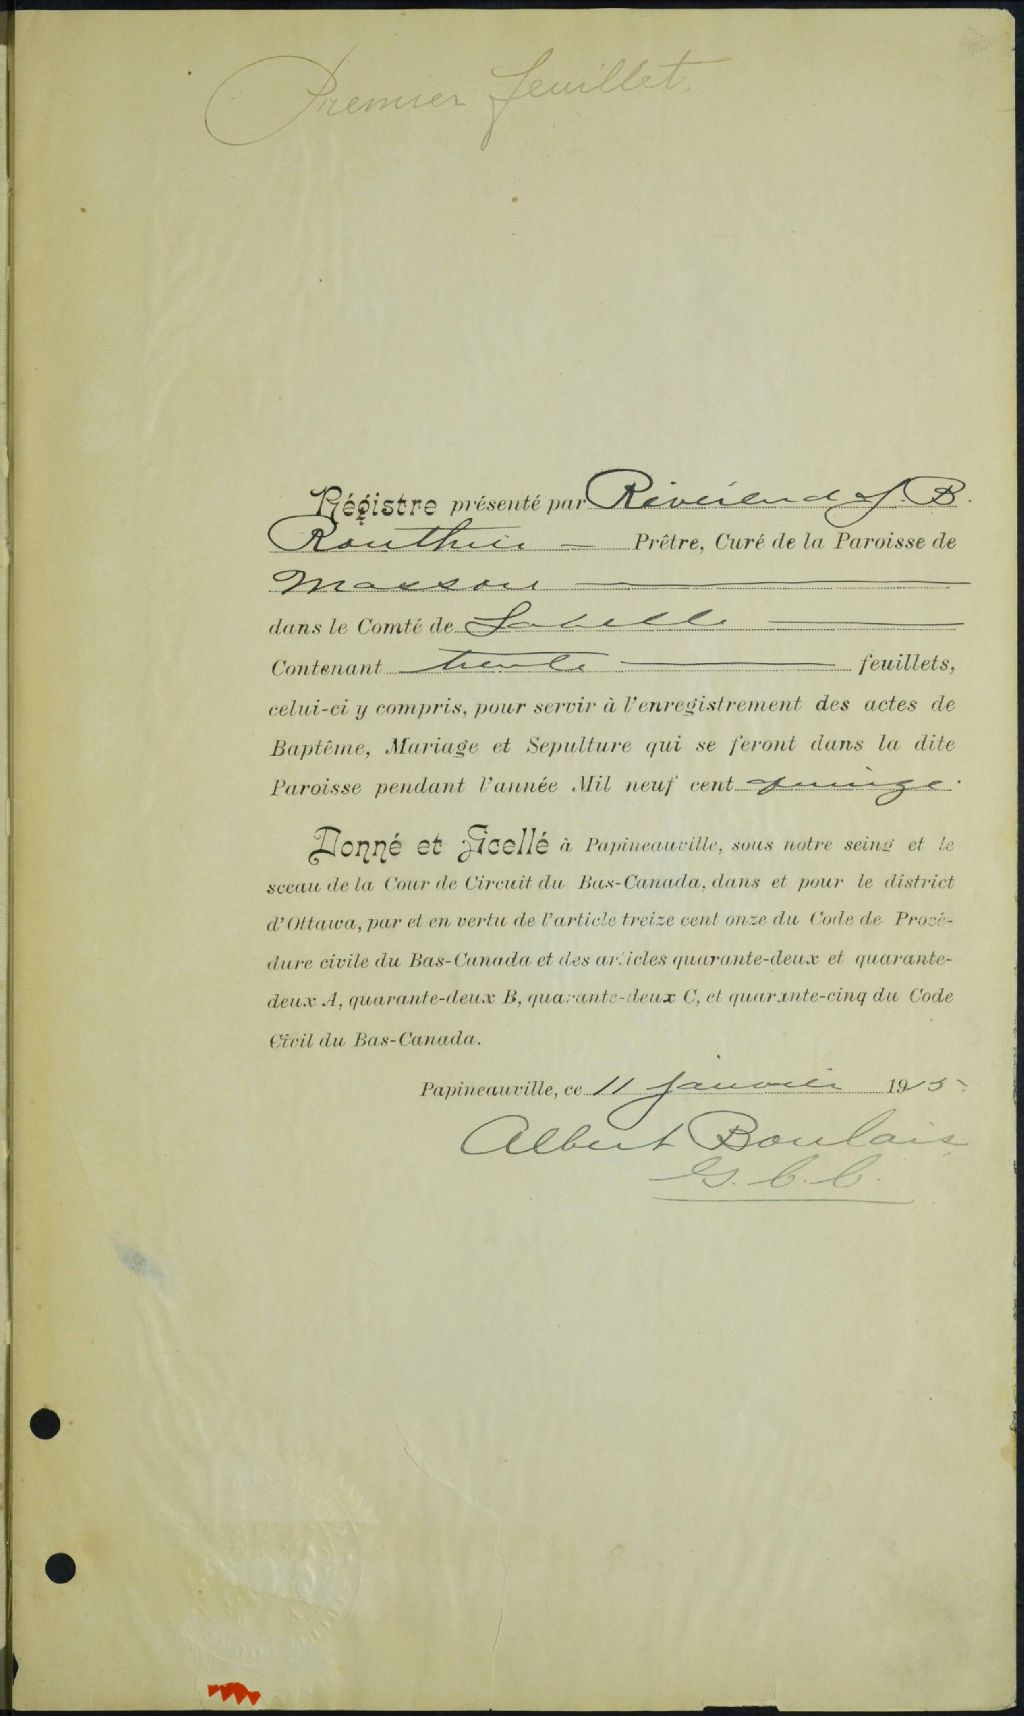 Premier feuillet.
Régistre présenté par Révérend J. B.
Routhier Prêtre, Curé de la Paroisse de
Masson
dans le Comté de Labelle
Contenant trente feuillets,
celui-ci y compris, pour servir à l'enregistrement des actes de
Baptême, Mariage et Sepulture qui se feront dans la dite
Paroisse pendant l'année Mil neuf cent quinze.
Donné et Scellé à Papineauville, sous notre seing et le
sceau de la Cour de Circuit du Bas-Canada, dans et pour le district
d'Ottawa, par et en vertu de l'article treize cent onze du Code de Procé-
dure civile du Bas-Canada et des articles quarante-deux et quarante-
deux A, quarante-deux B, quarante-deux C, et quarante-cinq du Code
Civil du Bas-Canada.
Papineauville, ce 11 janvier 1915
Albert Boulais
G. C. C.